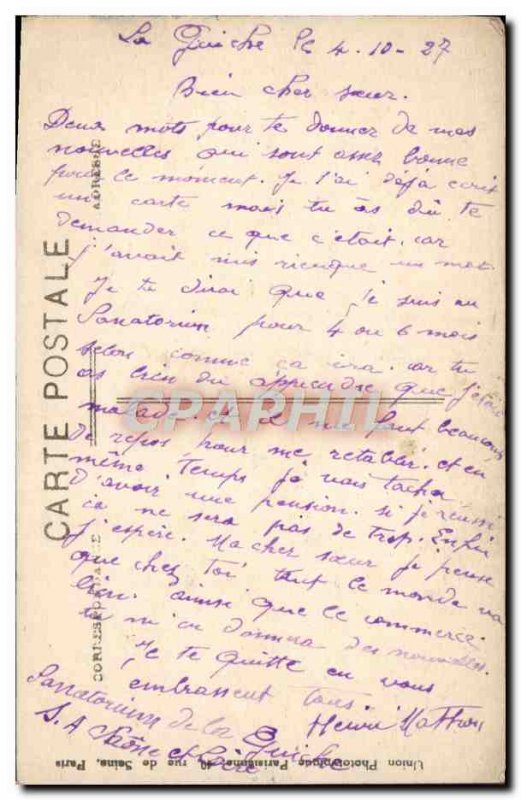 La Guiche le 4-10-27
Bien cher sœur.
Deux mots pour te donner de mes
nouvelles qui sont assez bonne
pour le moment. Je t'ai déjà écrit
un carte mais tu as dû te
demander ce que c'était. car
j'avait mis rien que un mot
Je te dirai que je suis au
Sanatorium pour 4 ou 6 mois
selon comme ça ira. car tu
as bien du apprendre que j'étais
malade et il me faut beaucoup
de repos pour me retablir. et en
même temps je vais tacher
d'avoir une pension. si je réussi
ça ne sera pas de trop. Enfin
j'espère. Ma cher sœur je pense
que chez toi tout le monde va
bien. ainsi que le commerce.
tu m'en donnera des nouvelles.
Je te quitte en vous
embrassent tous.
Henri
Sanatorium de la Guiche
S. A Saône et Loire
CARTE POSTALE
CORRESPONDANCE
ADRESSE
Union Photographique Parisienne, 40 rue de Seine, Paris
CPAPHIL